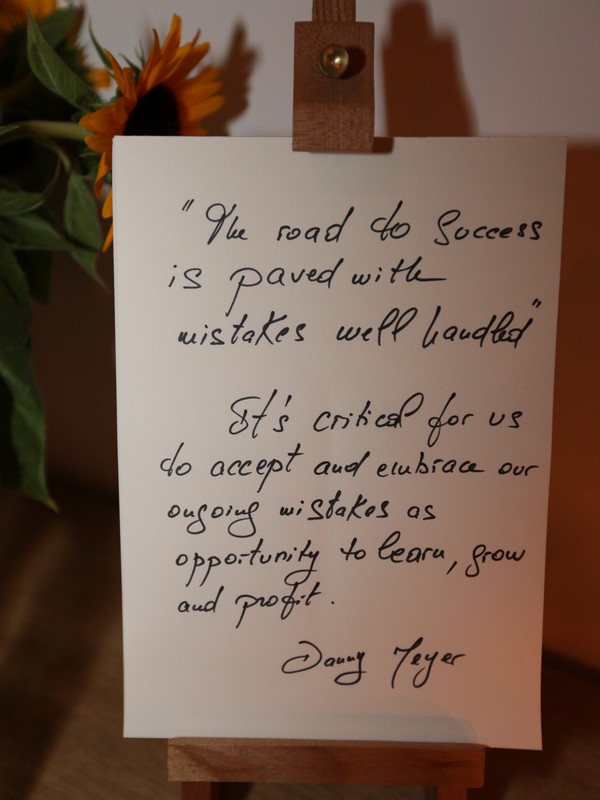 "The road to Success
is paved with
mistakes well handled"
It's critical for us
to accept and embrace our
ongoing mistakes as
opportunity to learn, grow
and profit.
Danny Meyer